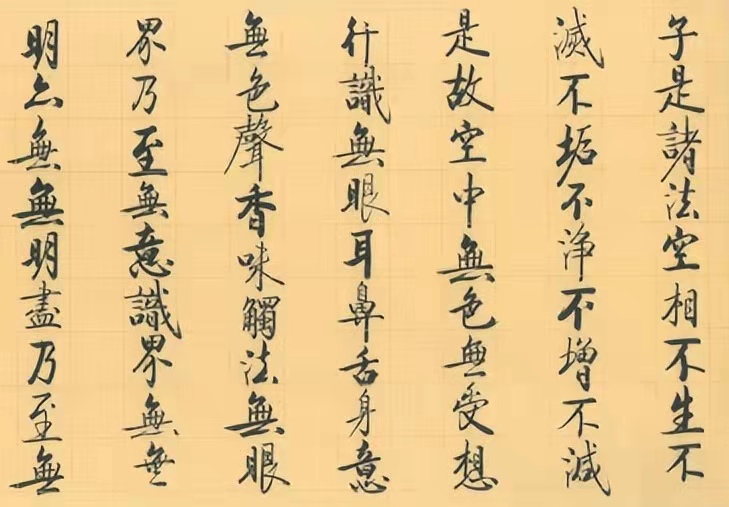 子是諸法空相不生不
滅不垢不淨不增不減
是故空中無色無受想
行識無眼耳鼻舌身意
無色聲香味觸法無眼
界乃至無意識界無無
明亦無無明盡乃至無